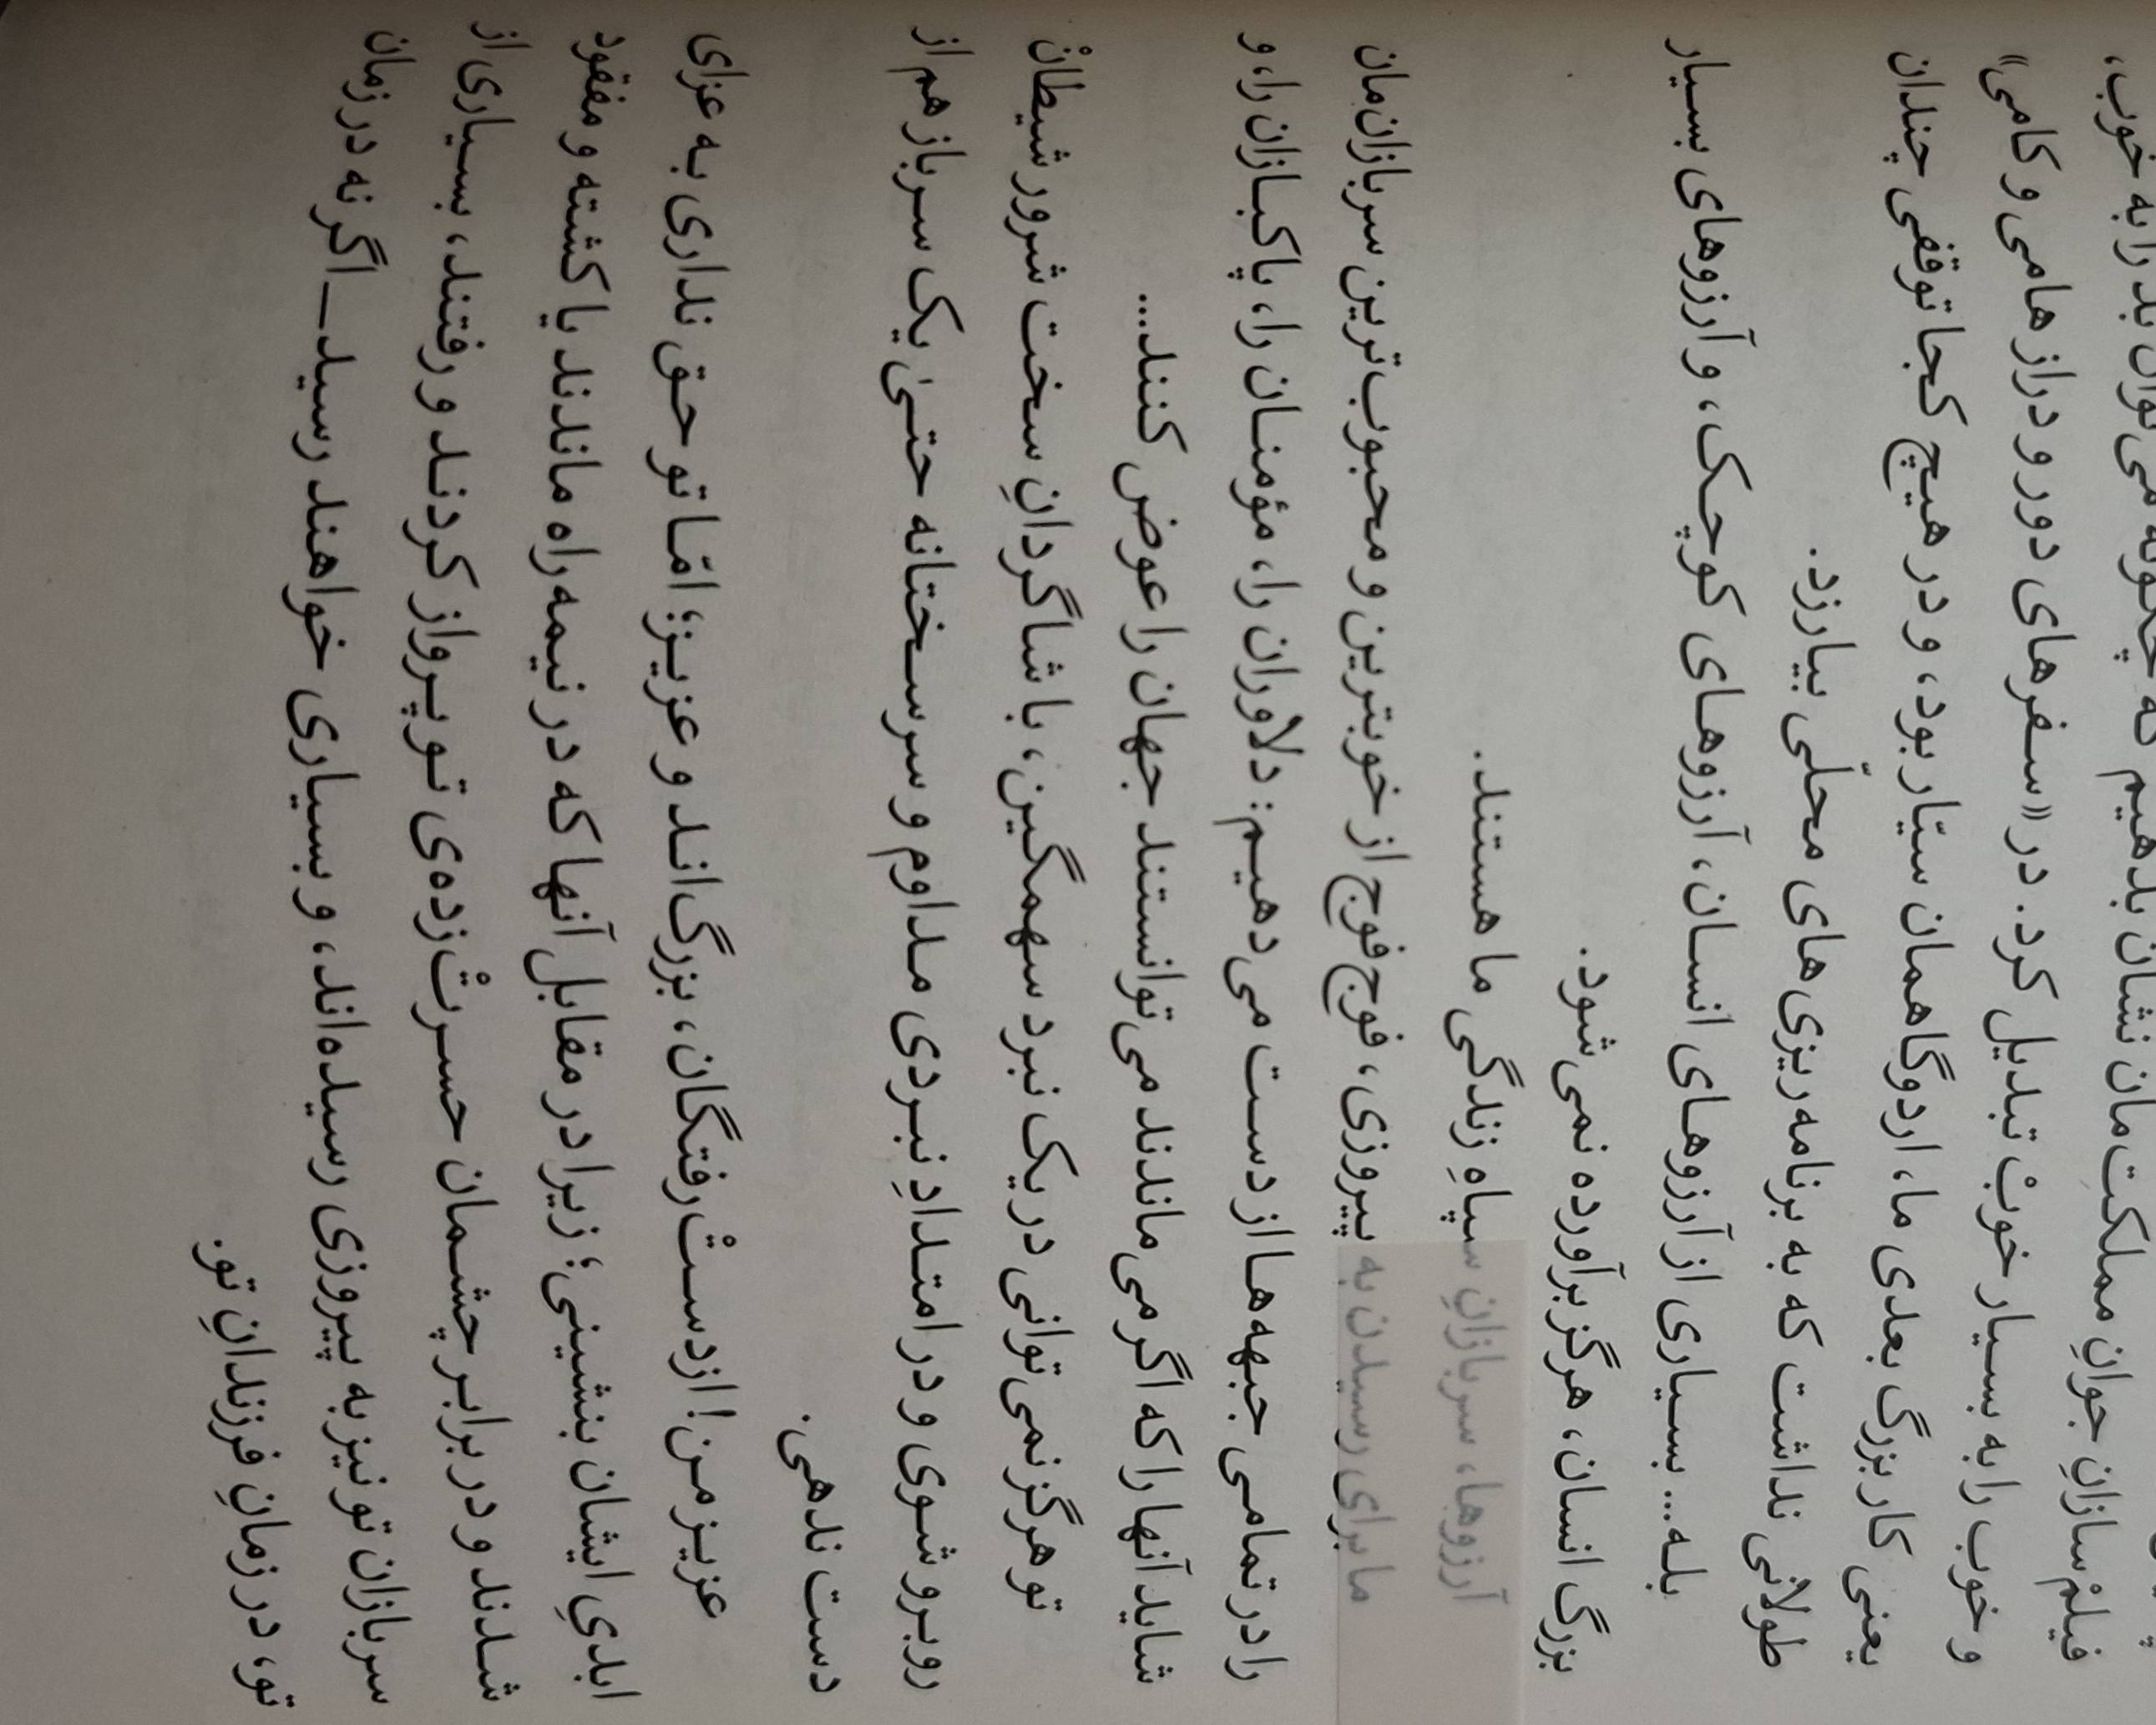 فیلمْ‌سازانِ جوانِ مملکت‌مان نشان بدهیم که چگونه می‌توان بد را به خوب،
و خوب را به بسیار خوبْ تبدیل کرد. در «سفرهای دور و دراز هامی و کامی»
یعنی کار بزرگ بعدی ما، اردوگاهمان سیّار بود، و در هیچ کجا توقفی چندان
طولانی نداشت که به برنامه‌ریزی‌های محلّی بیارزد.
بله... بسیاری از آرزوهای انسان، آرزوهای کوچک، و آرزوهای بسیار
بزرگ انسان، هرگز برآورده نمی‌شود.
آرزوها، سربازانِ سپاهِ زندگی ما هستند.
ما برای رسیدن به پیروزی، فوج فوج از خوبترین و محبوب‌ترین سربازان‌مان
را در تمامی جبهه‌ها از دست می‌دهیم: دلاوران را، مؤمنان را، پاکبازان را، و
شاید آنها را که اگر می‌ماندند می‌توانستند جهان را عوض کنند...
تو هرگز نمی‌توانی در یک نبرد سهمگین، با شاگردانِ سخت شرور شیطانْ
روبرو شوی و در امتدادِ نبردی مداوم و سرسختانه حتیٰ یک سرباز هم از
دست ندهی.
عزیز من! ازدستْ‌رفتگان، بزرگ‌اند و عزیز؛ امّا تو حق نداری به عزای
ابدیِ ایشان بنشینی؛ زیرا در مقابل آنها که در نیمه‌راه ماندند یا کشته و مفقود
شدند و در برابر چشمان حسرتْ‌زده‌ی تو پرواز کردند و رفتند، بسیاری از
سربازان تو نیز به پیروزی رسیده‌اند، و بسیاری خواهند رسید_اگر نه در زمان
تو، در زمانِ فرزندانِ تو.